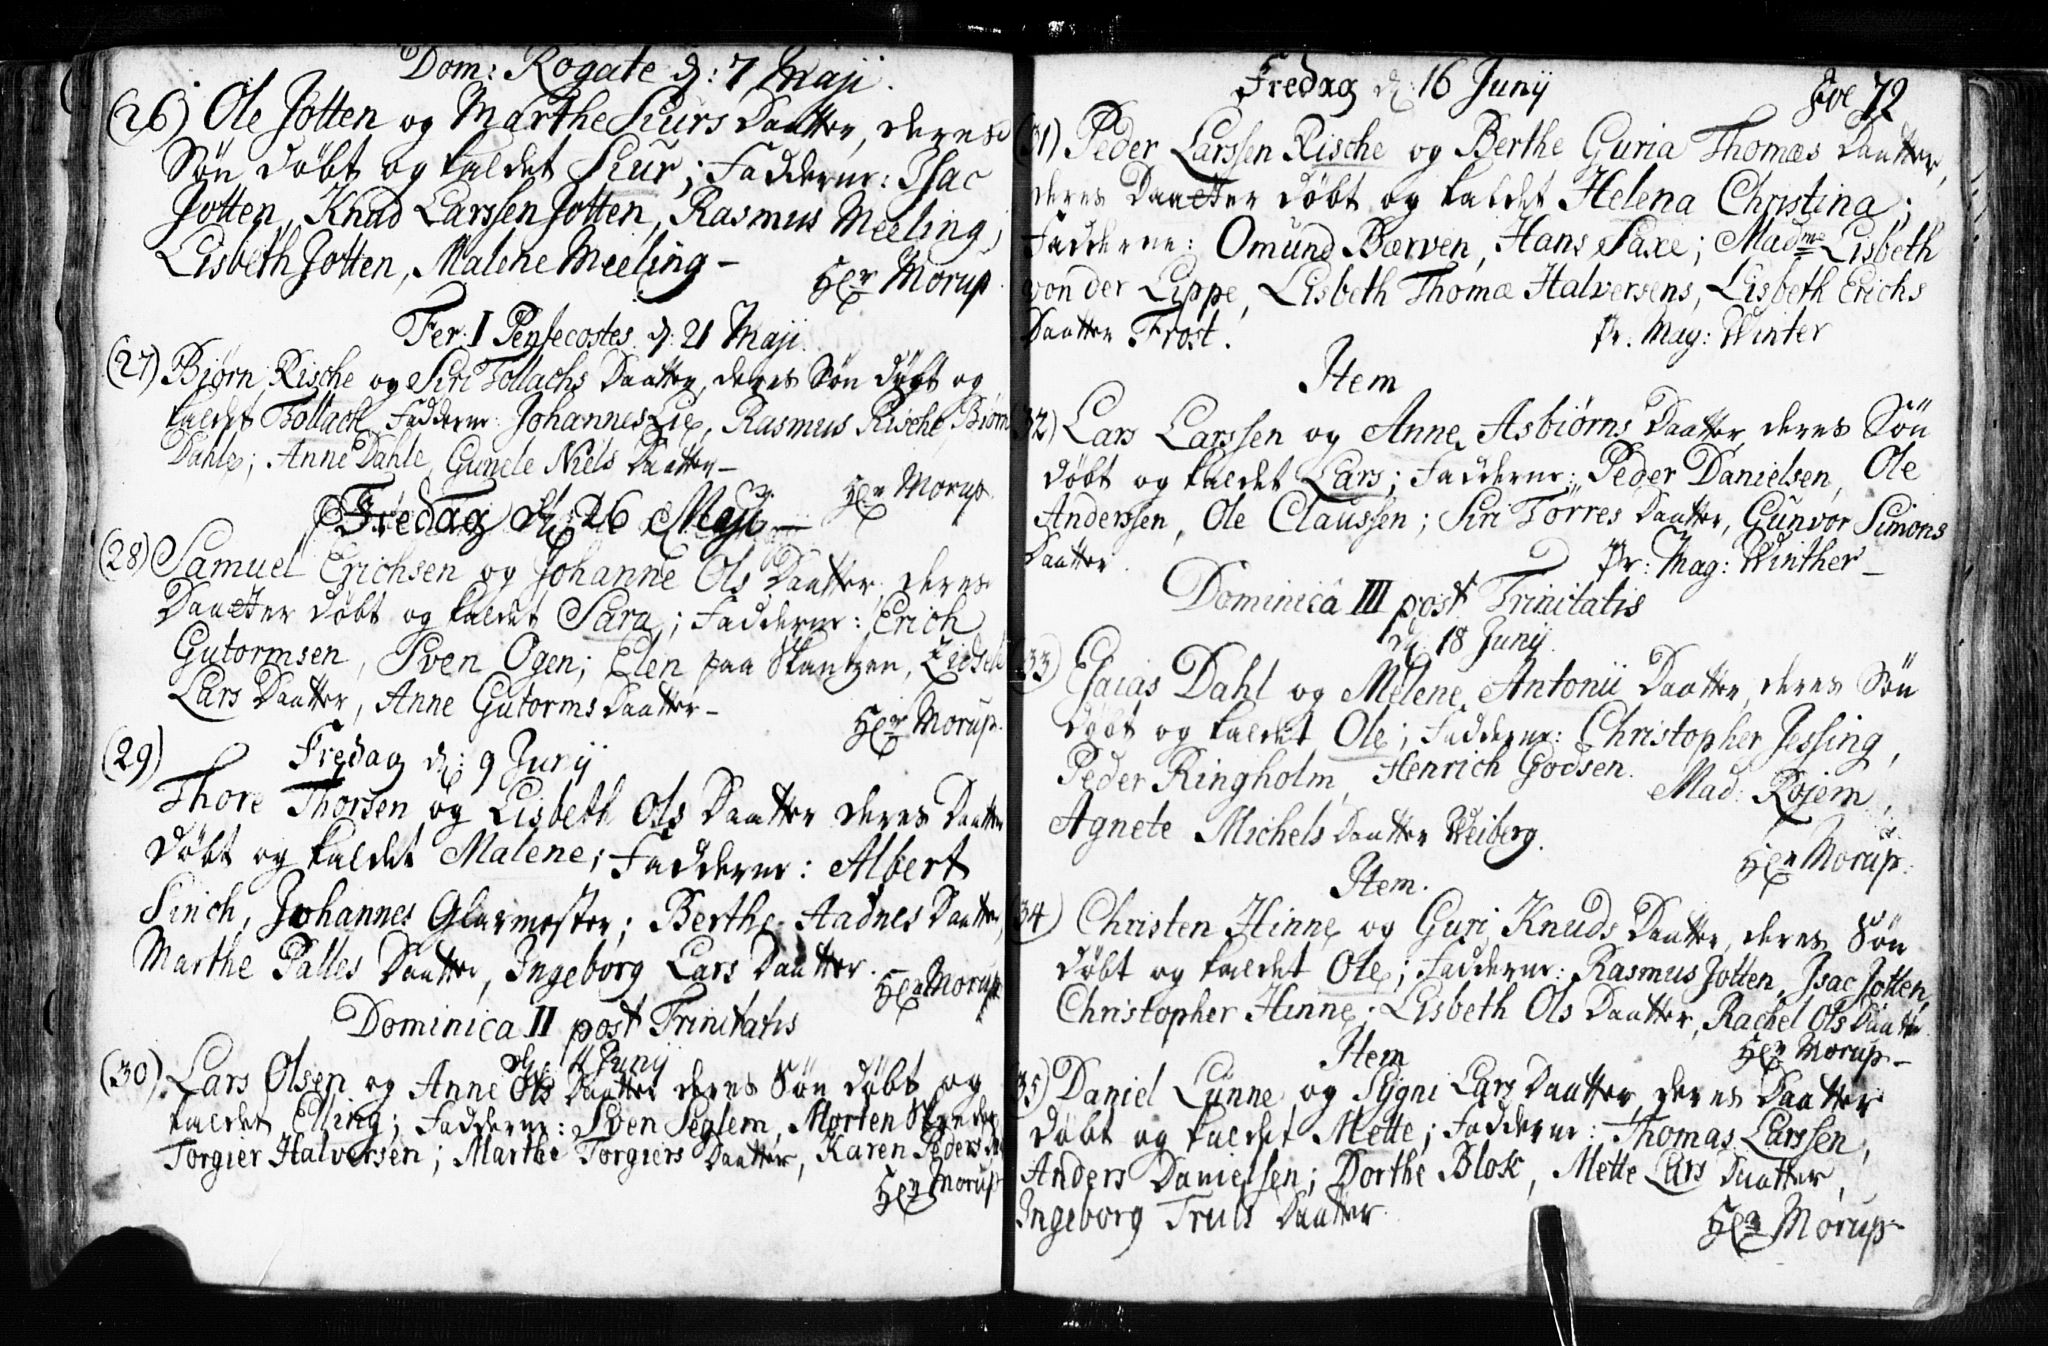 Dom: Rogate d: 7 Maji.
(26) Ole Jotten og Marthe Siurs Daatter, deres
Søn døbt og kaldet Siur; Fadderne: Isac
Jotten, Knud Larssen Jotten, Rasmus Meeling;
Lisbeth Jotten, Malene Meeling –
Hr Morup.
Fer: I Pentecostes. d: 21 Maji.
(27) Biørn Rische og Siri Tollachs Daatter, deres Søn døbt og
kaldet Tollack, Fadderne: Johannes Lie, Rasmus Rische, Biørn
Dahle; Anne Dahle, Gunele Niels Daatter –
Hr Morup.
Fredag d: 26 Maji –
(28) Samuel Erichsen og Johanne Ols Daatter, deres
Daatter døbt og kaldet Sara; Fadderne: Erich
Gutormsen, Sven Ogen; Elen paa Skantzen,
Lars Daatter, Anne Gutorms Daatter –
Hr Morup.
(29) Fredag d: 9 Junij
Thore Thorsen og Lisbeth Ols Daatter deres Daatter
døbt og kaldet Malene; Fadderne: Albert
Sinch, Johannes Glarmester; Berthe Aadnes Daatter,
Marthe Palles Daatter, Ingeborg Lars Daatter.
Hr Morup
Dominica II post Trinitatis
Junij
(30) Lars Olsen og Anne Ols Daatter deres Søn døbt og
kaldet Elling; Fadderne: Sven Seglem, Morten
Torgier Halversen; Marthe Torgiers Daatter, Karen Peders
Hr Morup
Fredag d: 16 Junij
Fol 72
31) Peder Larssen Rische og Berthe Guria Thomæs Daatter,
deres Daatter døbt og kaldet Helena Christina;
Fadderne: Omund Bærven, Hans Saxe; Madme Lisbeth
von der Lippe, Lisbeth Thomæ Halversens, Lisbeth Erichs
Daatter Frost.
Pr. Mag: Winter
Item
32) Lars Larssen og Anne Asbiørns Daatter, deres Søn
døbt og kaldet Lars; Fadderne: Peder Danielsen, Ole
Anderssen, Ole Claussen; Siri Törres Daatter, Gunvor Simons
Daatter.
Pr: Mag: Winther –
Dominica III post Trinitatis
d: 18 Junij.
33) Esaias Dahl og Melene Antonii Daatter, deres Søn
døbt og kaldet Ole; Fadderne: Christopher Jessing,
Peder Ringholm, Henrich Godsen. Mad: Rojem,
Agnete Michels Daatter Weiberg.
Hr Morup.
Item.
34) Christen Hinne og Guri Knuds Daatter, deres Søn
døbt og kaldet Ole; Fadderne: Rasmus Jotten, Isac Jotten,
Christopher Hinne; Lisbeth Ols Daatter, Rachel Ols Daatter
Hr Morup –
Item
35) Daniel Lünne og Sygni Lars Daatter, deres Daatter
døbt og kaldet Mette; Fadderne: Thomas Larssen,
Anders Danielsen; Dorthe Blok, Mette Lars Daatter,
Ingeborg Truls Daatter.
Hr Morup